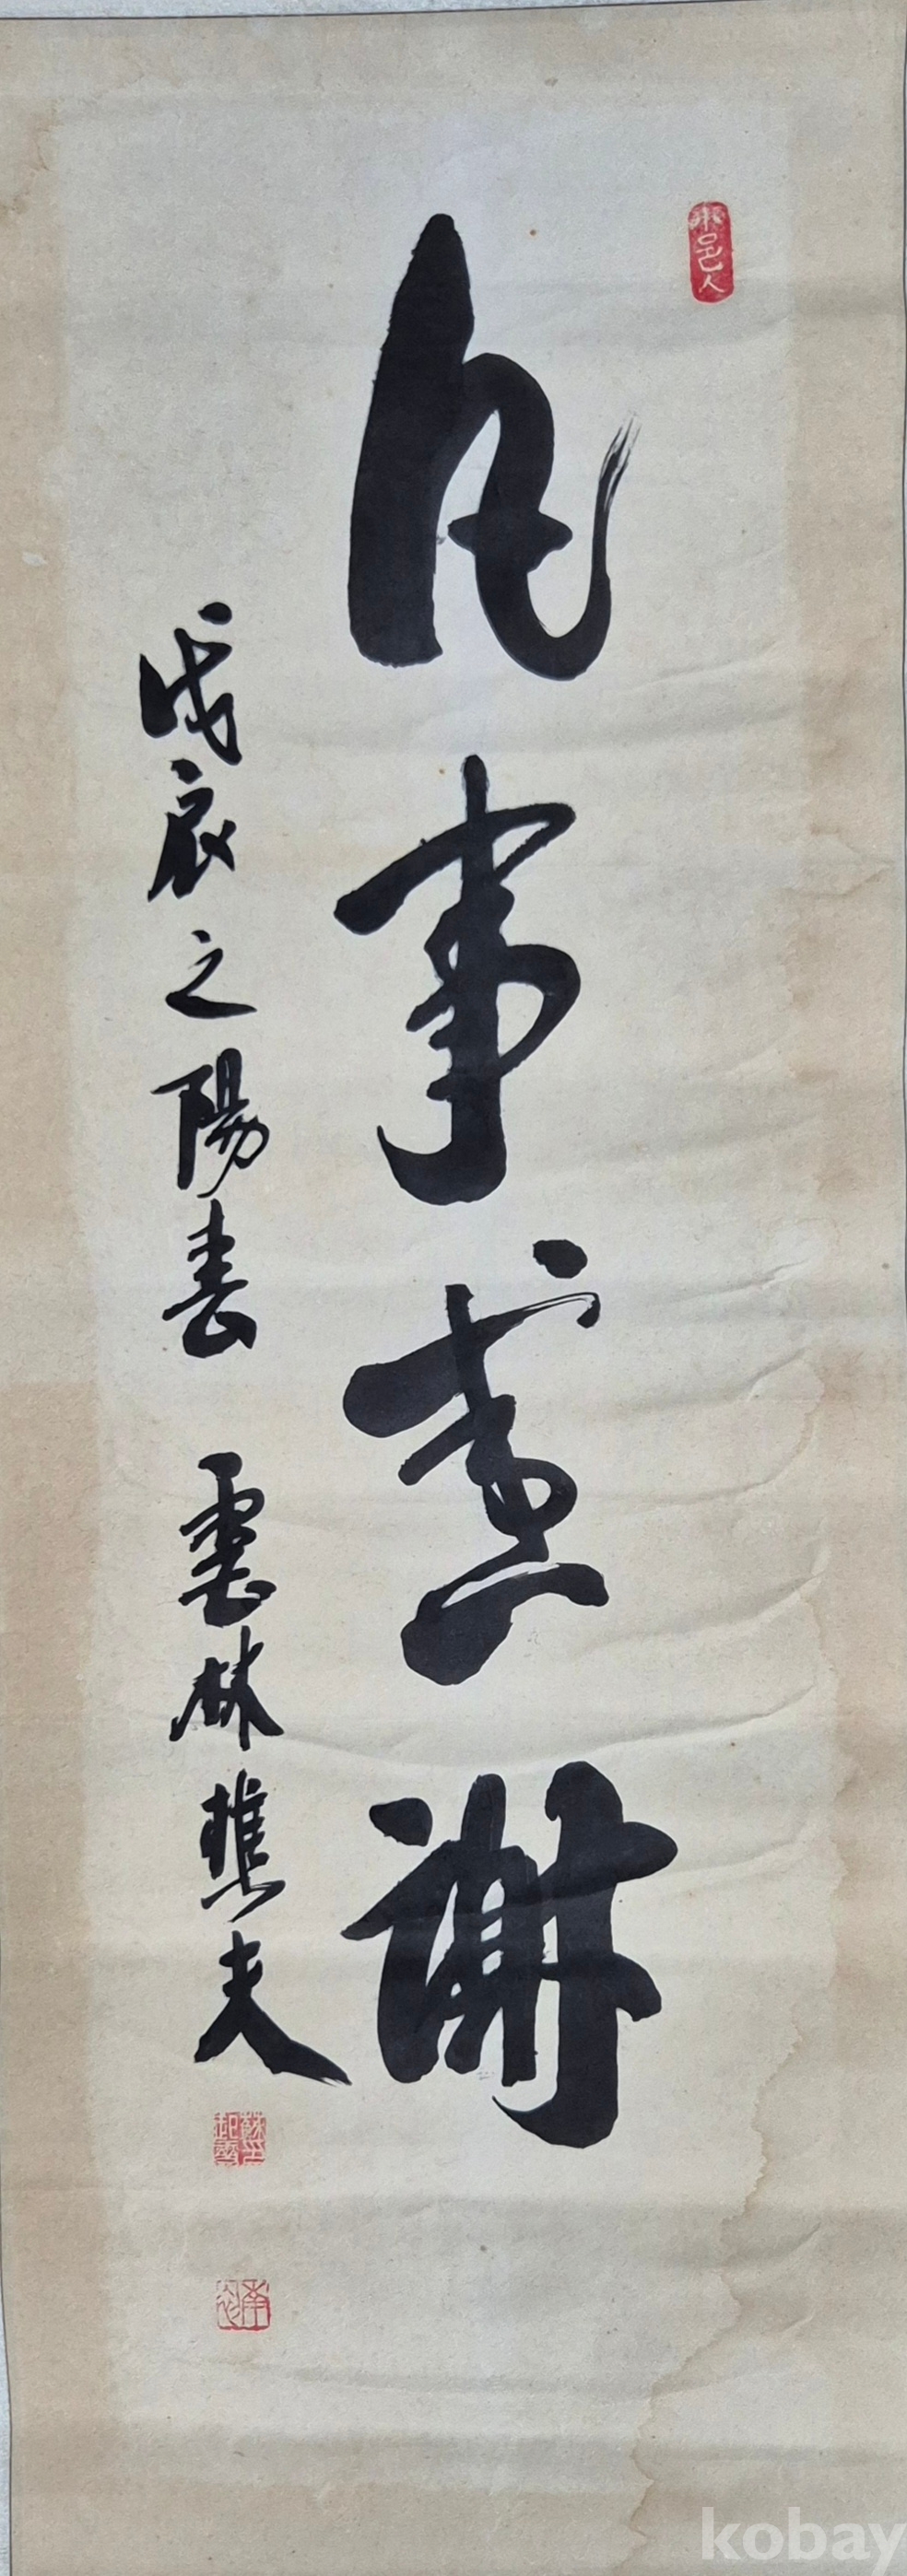 凡事感謝
戊辰之陽春 雲林樵夫
kobay